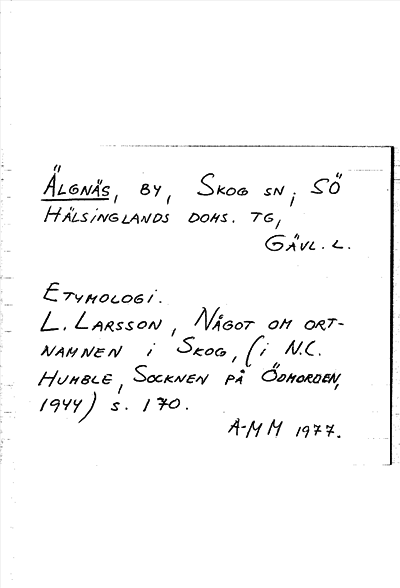 ÄLGNÄS, BY, SKOG SN, SÖ
HÄLSINGLANDS DOMS. TG,
GÄVL. L.
ETYMOLOGI.
L. LARSSON, NÅGOT OM ORT-
NAMNEN I SKOG, (I N.C.
HUMBLE, SOCKNEN PÅ ÖDMORDEN,
1944) S. 170.
A-MM 1977.